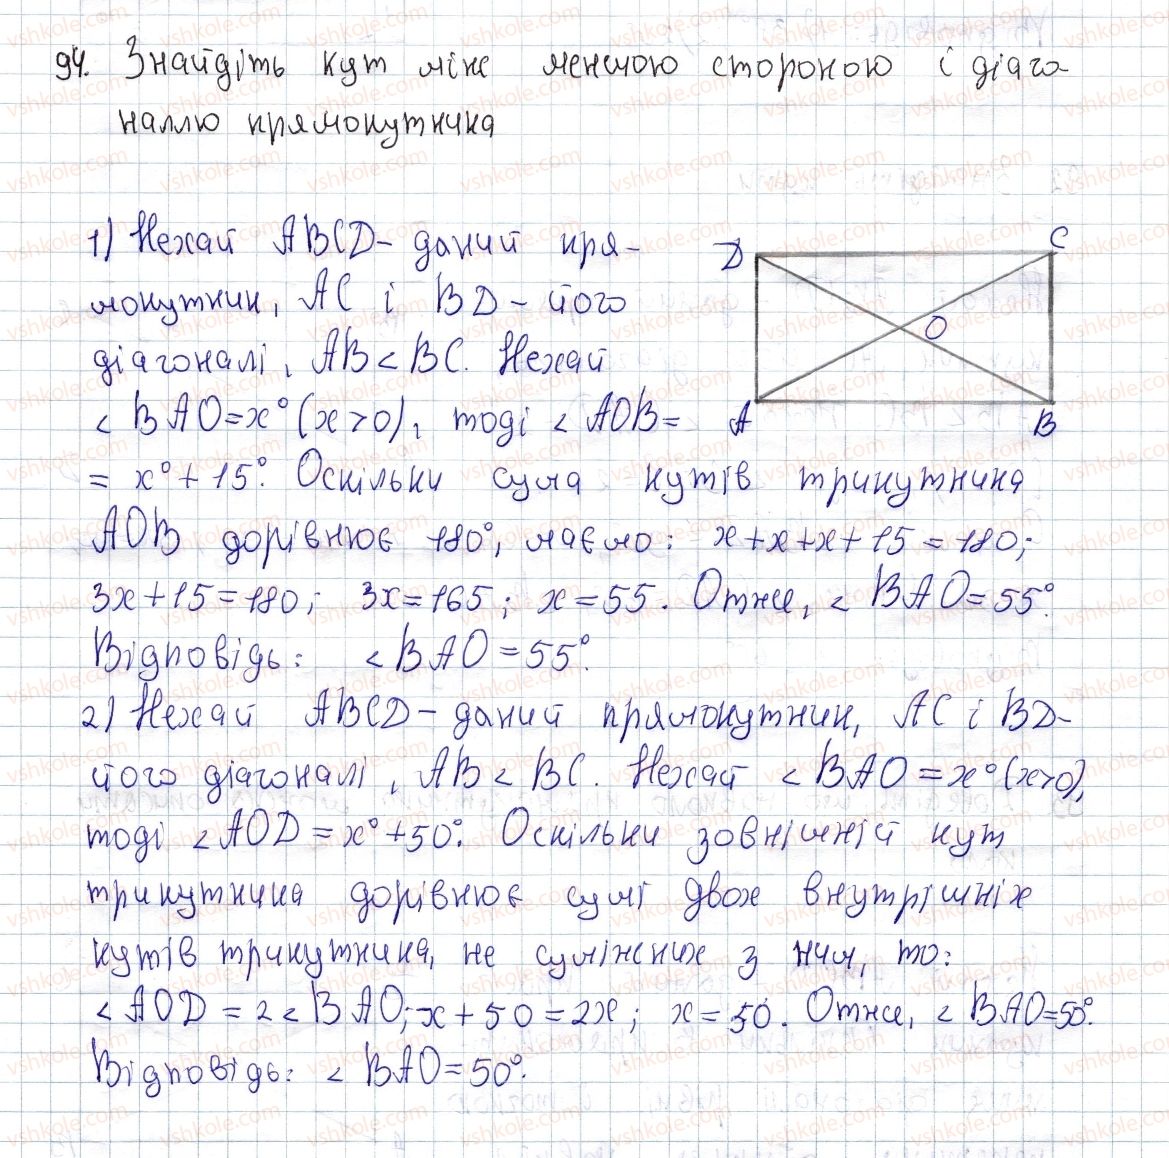 94. Знайдіть кут між меншою стороною і діаго-
наллю прямокутника
1) Нехай ABCD – даний пря-
мокутник, AC і BD – його
діагоналі, AB < BC. Нехай
∠BAO = x° (x > 0), тоді ∠AOB =
= x° + 15°. Оскільки сума кутів трикутника
AOB дорівнює 180°, маємо: x + x + x + 15 = 180;
3x + 15 = 180; 3x = 165; x = 55. Отже, ∠BAO = 55°.
Відповідь: ∠BAO = 55°.
2) Нехай ABCD – даний прямокутник, AC і BD –
його діагоналі, AB < BC. Нехай ∠BAO = x° (x > 0),
тоді ∠AOD = x° + 50°. Оскільки зовнішній кут
трикутника дорівнює сумі двох внутрішніх
кутів трикутника, не суміжних з ним, то:
∠AOD = 2∠BAO; x + 50 = 2x; x = 50. Отже, ∠BAO = 50°.
Відповідь: ∠BAO = 50°.
D
C
O
A
B
vshkole.com